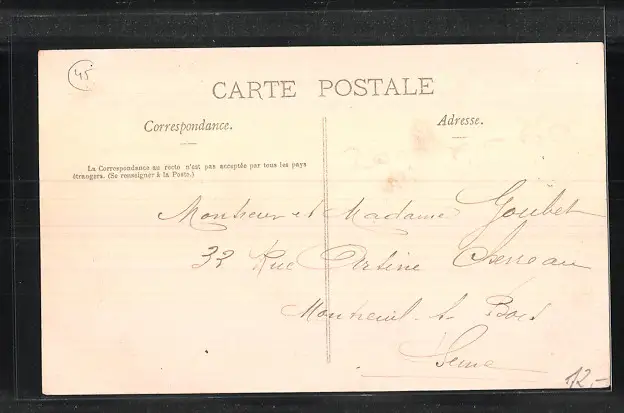 45
CARTE POSTALE
Correspondance.
Adresse.
La Correspondance au recto n'est pas acceptée par tous les pays
étrangers. (Se renseigner à la Poste.)
Monsieur et Madame Goubet
33 Rue Arsène Chereau
Montreuil s. Bois
Seine
12,-